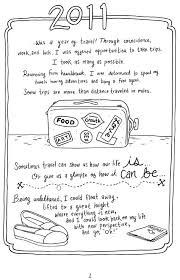 2011
Was a year of travel! Through coincidence,
work, and luck, I was afforded opportunities to take trips.
I took as many as possible.
Recovering from heartbreak, I was determined to spend my
travels having adventures and being a free agent.
Some trips are more than distance traveled in miles.
FOOD
Sometimes travel can show us how our life is
Or give us a glimpse of how it can be.
Being untethered, I could float away,
lifted to a great height
where everything is new,
and I could look back on my life
with new perspective,
and go, "Oh!"